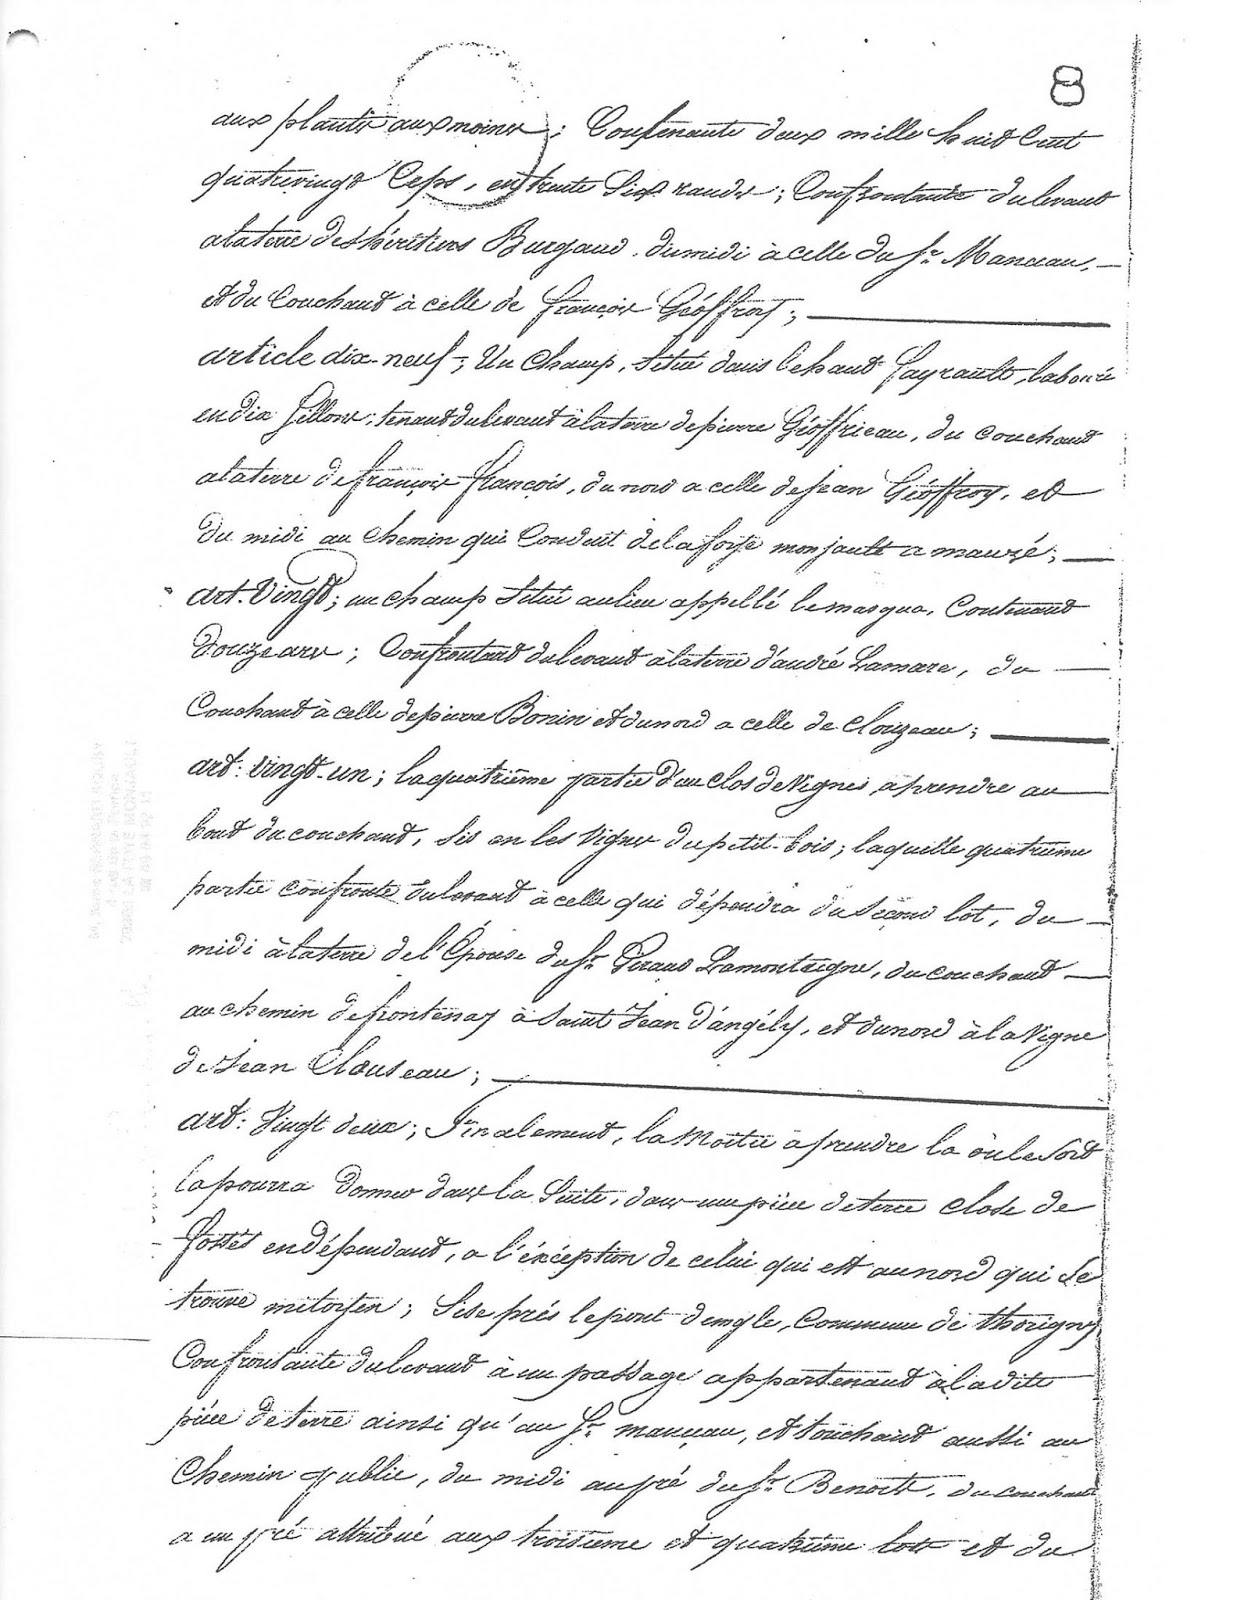 8
aux plantis aux moines; Contenante deux mille huit Cent
quatrevingt Ceps, en trente Six rands; Confrontante du levant
a la terre des héritiers Burgaud, du midi à celle du Sr. Manceau,
et du Couchant à celle de françois Géoffroy;
article dix-neuf; Un Champ, Situé dans le haut Fayrault, labouré
en dix Sillons; tenant du levant à la terre de pierre Géoffrieau, du couchant
a la terre de françois françois, du nord a celle de jean Géoffroy, et
du midi au chemin qui Conduit de la foye monjault a mauzé;
art. Vingt; un champ Situé au lieu appellé le masqua, Contenant
douze ars; Confrontant du levant à la terre d'andré Lamare, du
Couchant à celle de pierre Bonin et du nord a celle de Clouzeau;
art: vingt-un; la quatrième partie d'un clos de Vignes, a prendre au
bout du couchant, Sis en les Vignes du petit-bois; laquelle quatrième
partie confronte du levant à celle qui dépendra du Second lot, du
midi à la terre de l'Épouse du Sr. Lamontaigne, du couchant
au chemin de frontenay à Saint Jean d'angély, et du nord à la Vigne
de Jean Clouseau;
art: Vingt deux; Finalement, la Moitié à prendre la où le Sort
la pourra donner dans la Suite, dans une pièce de terre close de
fossés en dépendant, a l'éxception de celui qui est au nord qui Se
trouve mitoyen; Sise près le pont , Commune de thorigny
Confrontante du levant à un passage appartenant à la dite
pièce de terre ainsi qu'au Sr. manceau, et touchant aussi au
Chemin public, du midi au pré du Sr. Benoit, du couchant
a un pré attribué aux troisième et quatrième lots et du